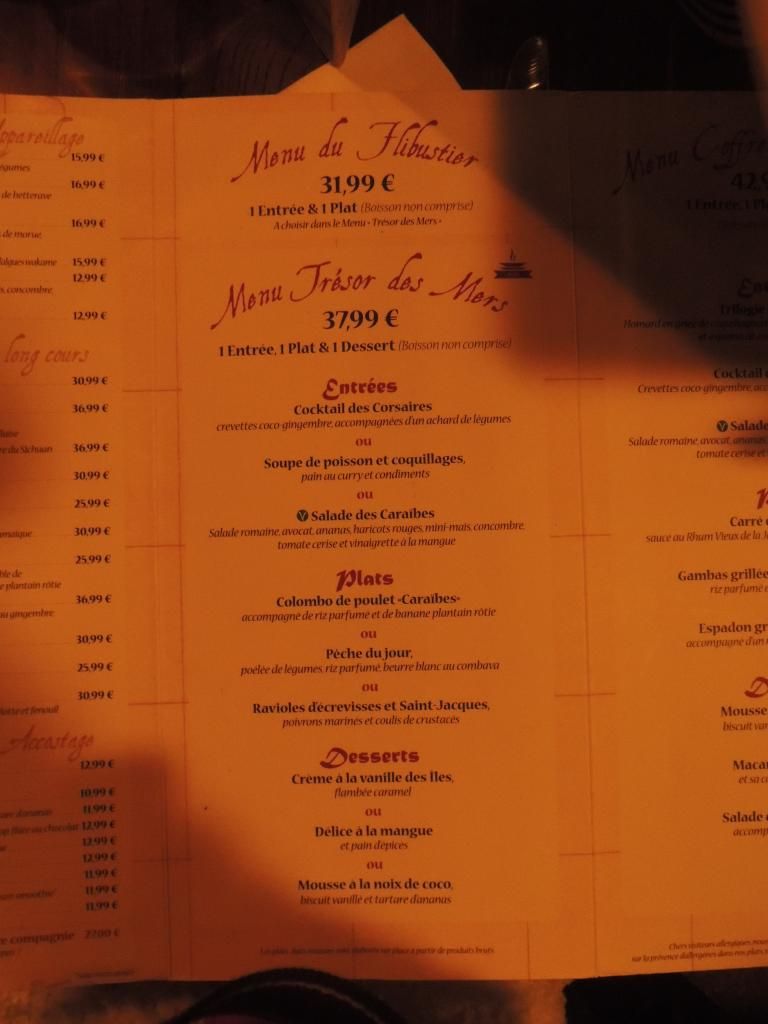 Appareillage
15,99 €
légumes
16,99 €
de betterave
16,99 €
de morue,
15,99 €
d'algues wakame
12,99 €
concombre,
12,99 €
long cours
30,99 €
36,99 €
36,99 €
re du Sichuan
30,99 €
25,99 €
30,99 €
25,99 €
ble de
e plantain rôtie
36,99 €
au gingembre
30,99 €
25,99 €
30,99 €
lotte et fenouil
Accostage
12,99 €
10,99 €
11,99 €
12,99 €
12,99 €
12,99 €
11,99 €
11,99 €
11,99 €
compagnie
Menu du Flibustier
31,99 €
1 Entrée & 1 Plat (Boisson non comprise)
A choisir dans le Menu « Trésor des Mers »
Menu Trésor des Mers
37,99 €
1 Entrée, 1 Plat & 1 Dessert (Boisson non comprise)
Entrées
Cocktail des Corsaires
crevettes coco-gingembre, accompagnées d'un achard de légumes
ou
Soupe de poisson et coquillages,
pain au curry et condiments
ou
V Salade des Caraïbes
Salade romaine, avocat, ananas, haricots rouges, mini-maïs, concombre,
tomate cerise et vinaigrette à la mangue
Plats
Colombo de poulet «Caraïbes»
accompagné de riz parfumé et de banane plantain rôtie
ou
Pêche du jour,
poêlée de légumes, riz parfumé, beurre blanc au combava
ou
Ravioles d'écrevisses et Saint-Jacques,
poivrons marinés et coulis de crustacés
Desserts
Crème à la vanille des Îles,
flambée caramel
ou
Délice à la mangue
et pain d'épices
ou
Mousse à la noix de coco,
biscuit vanillé et tartare d'ananas
Les plats "faits maison" sont élaborés sur place à partir de produits bruts
Menu Coffre
42,9
1 Entrée, 1 Pl
En
Trilogie
Cocktail
Crevettes coco-gingembre, acc
V Salade
Salade romaine, avocat, ananas
tomate cerise et
P
Carré
sauce au Rhum Vieux de la J
Gambas grillée
riz parfumé e
Espadon gr
accompagné d'un
D
Mousse
biscuit van
Macar
et sa c
Salade
accomp
Chers visiteurs allergiques, nous
sur la présence d'allergènes dans nos plats,